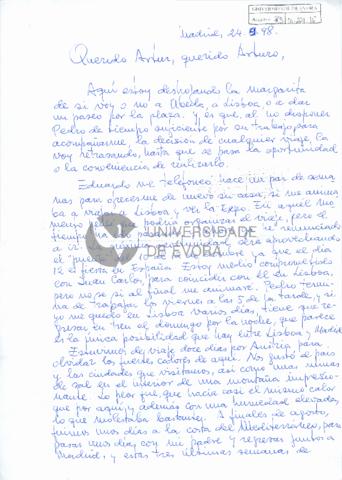 Madrid, 24.9.98.
Querido Artur, querido Arturo,
Aquí estoy deshojando la margarita
de si voy o no a Ubeda, a Lisboa, o a dar
un paseo por la plaza. Y es que, al no disponer
Pedro de tiempo suficiente por su trabajo, para
acompañarme, la decisión de cualquier viaje, la
voy retrasando, hasta que se pasa la oportunidad
o la conveniencia de realizarlo.
Eduardo me telefoneó hace un par de sema
nas para ofrecerme de nuevo su casa, si me anima
ba a viajar a Lisboa y ver la Expo. En aquel mo
mento podría organizar el viaje, pero el
renunciado
a será aprovechando
el ya que el día
12 es fiesta en España. Estoy medio comprometido
con Juan Carlos, para coincidir con él en Lisboa,
pero no sé si al final me animaré. Pedro termi
na de trabajar los viernes a las 5 de la tarde, y si
yo me quedo en Lisboa varios días tiene que re-
gresar en tren el domingo por la noche, que parece
es la única posibilidad que hay entre Lisboa y Madrid.
Estuvimos de viaje doce días por Austria para
olvidar los fuertes calores de aquí. Nos gustó el país
y las ciudades que visitamos, así como unas minas
de sal en el interior de una montaña impresio-
nante. Lo peor fue, que hacía casi el mismo calor
que por aquí, y además con una humedad elevada,
lo que molestaba bastante. A finales de agosto,
fuimos unos días a la costa del Mediterráneo, para
pasar unos días con mi padre y regresar juntos a
Madrid, y estas tres últimas semanas, de
UNIVERSIDADE
DE ÉVORA